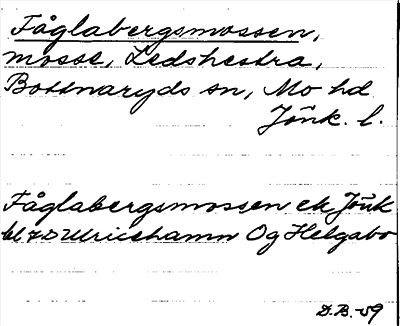 Fåglabergsmossen,
mosse, Ledshestra,
Bottnaryds sn, Mo hd.
Jönk. l.
Fåglabergsmossen ek Jönk
bl 7D Ulricehamn Og Helgabo
D.B. -59